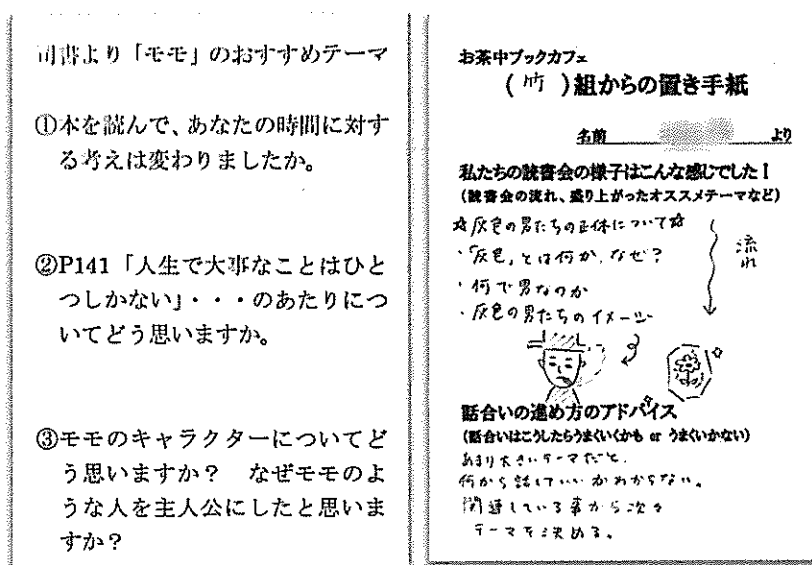 司書より「モモ」のおすすめテーマ
①本を読んで、あなたの時間に対す
る考えは変わりましたか。
②P141「人生で大事なことはひと
つしかない」・・・のあたりにつ
いてどう思いますか。
③モモのキャラクターについてど
う思いますか？　なぜモモのよ
うな人を主人公にしたと思いま
すか？
お茶中ブックカフェ
（ 竹 ）組からの置き手紙
名前　より
私たちの読書会の様子はこんな感じでした！
（読書会の流れ、盛り上がったオススメテーマなど）
☆灰色の男たちの正体について☆
・「灰色」とは何か、なぜ？
・何で男なのか
・灰色の男たちのイメージ
流れ
話合いの進め方のアドバイス
（話合いはこうしたらうまくいくかも or うまくいかない）
あまり大きいテーマだと、
何から話していいかわからない。
関連している事から次々
テーマを決める。